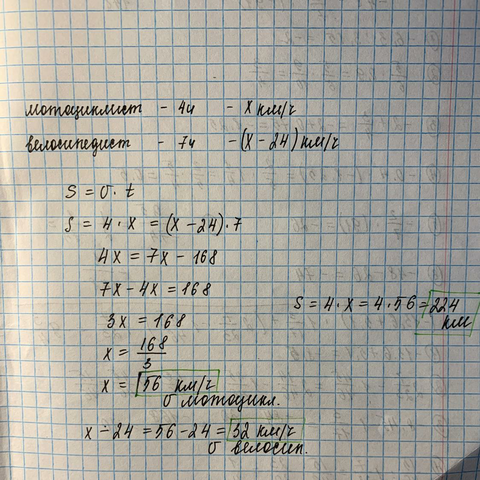 мотоциклист - 4ч - x км/ч
велосипедист - 7ч - (x - 24) км/ч
S = υ · t
S = 4 · x = (x - 24) · 7
4x = 7x - 168
7x - 4x = 168
3x = 168
x = 168/3
x = 56 км/ч
υ мотоцикл.
x - 24 = 56 - 24 = 32 км/ч
υ велосип.
S = 4 · x = 4 · 56 = 224
км